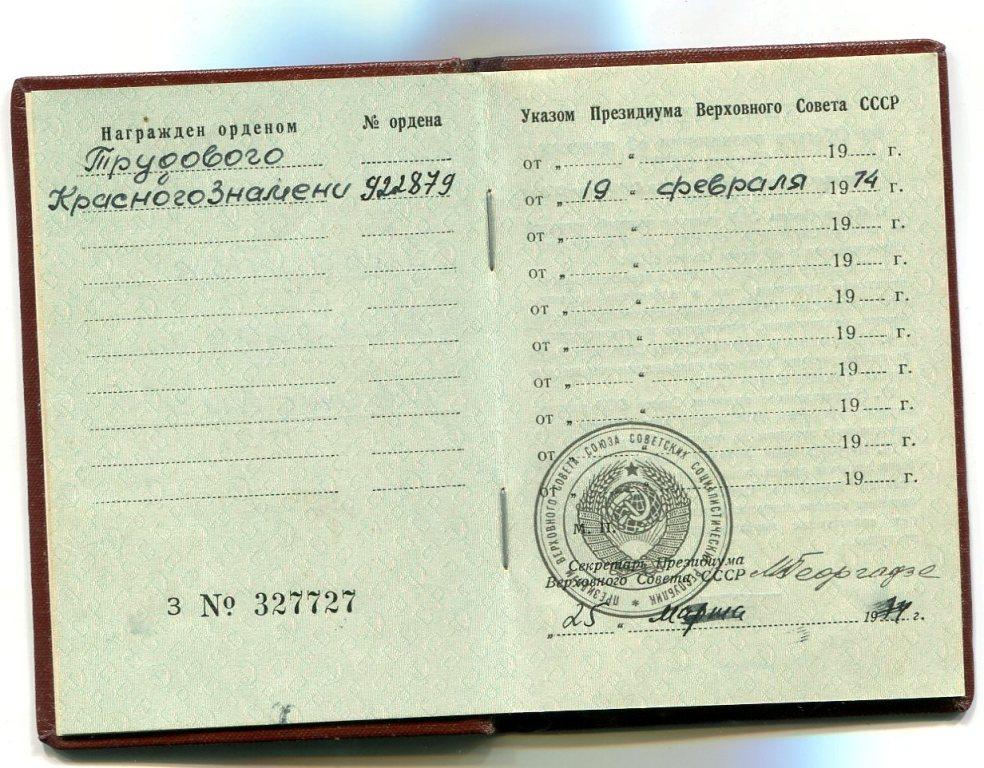 Награжден орденом
№ ордена
Трудового
Красного Знамени 922879
З № 327727
Указом Президиума Верховного Совета СССР
от „ “ 19 г.
от „ 19 “ февраля 1974 г.
от „ “ 19 г.
от „ “ 19 г.
от „ “ 19 г.
от „ “ 19 г.
от „ “ 19 г.
от „ “ 19 г.
от „ “ 19 г.
от „ 19 г.
ПРЕЗИДИУМ ВЕРХОВНОГО СОВЕТА СОЮЗА СОВЕТСКИХ СОЦИАЛИСТИЧЕСКИХ РЕСПУБЛИК
М. П.
Секретарь Президиума
Верховного Совета СССР М Георгадзе
„ 25 “ марта 1974 г.